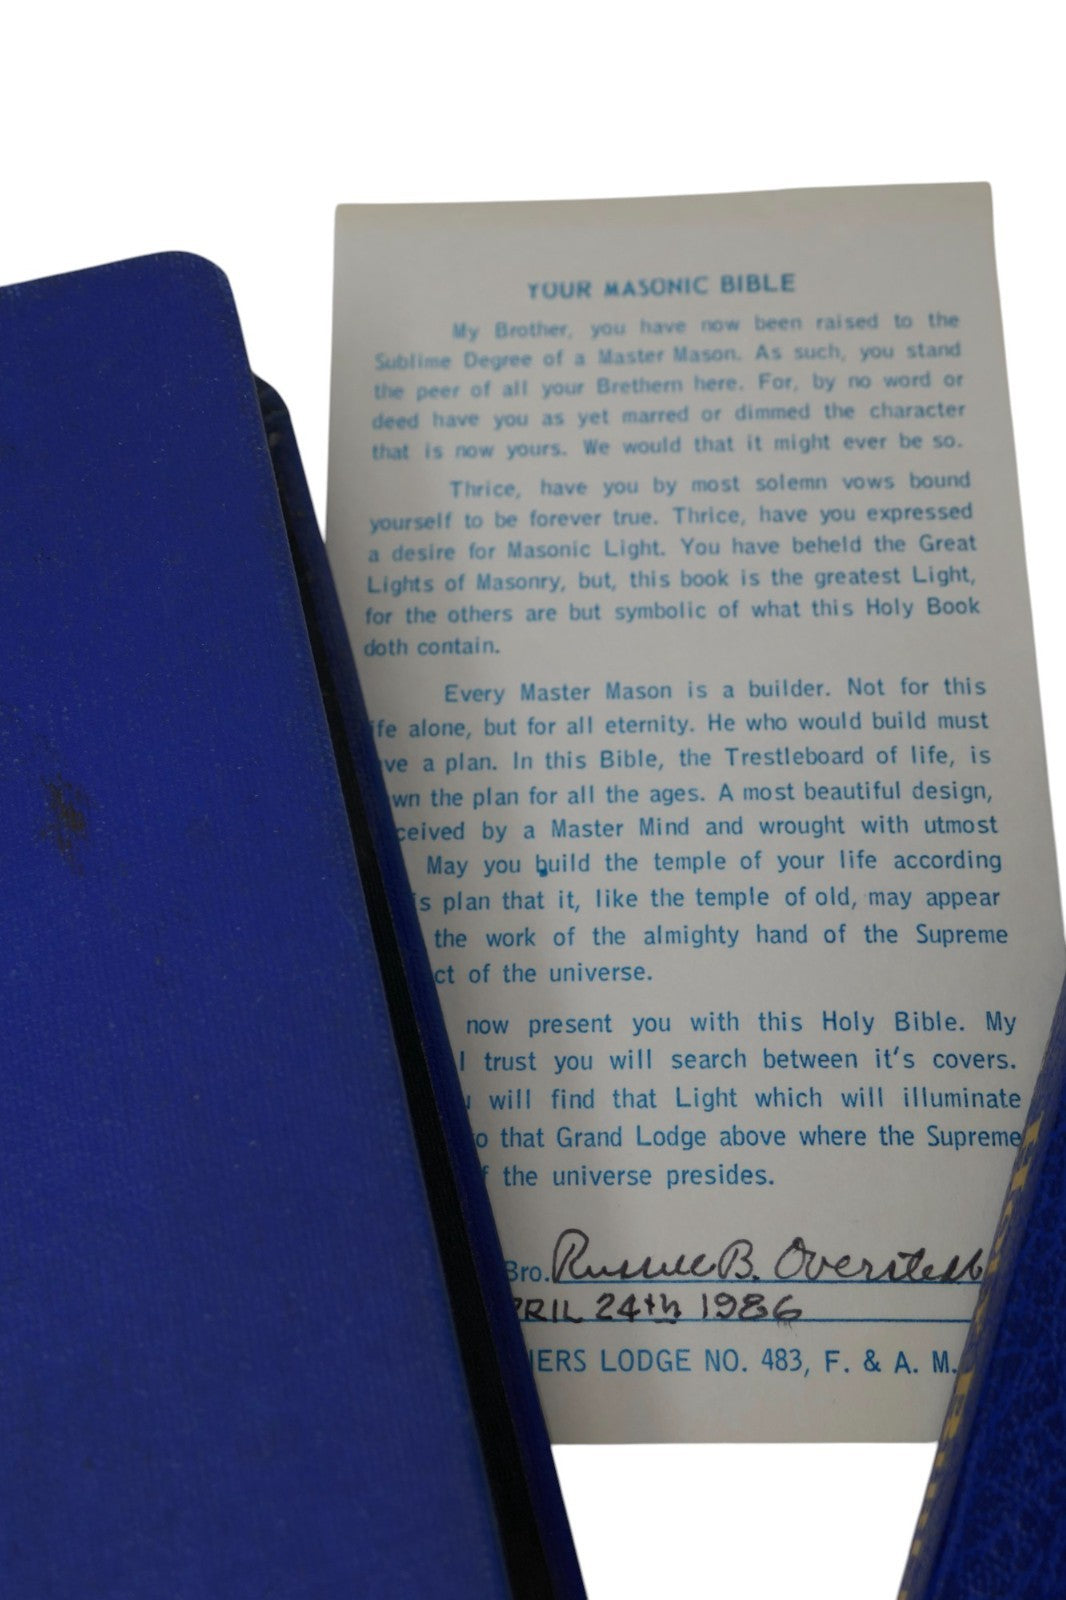 YOUR MASONIC BIBLE
My Brother, you have now been raised to the
Sublime Degree of a Master Mason. As such, you stand
the peer of all your Brethern here. For, by no word or
deed have you as yet marred or dimmed the character
that is now yours. We would that it might ever be so.
Thrice, have you by most solemn vows bound
yourself to be forever true. Thrice, have you expressed
a desire for Masonic Light. You have beheld the Great
Lights of Masonry, but, this book is the greatest Light,
for the others are but symbolic of what this Holy Book
doth contain.
Every Master Mason is a builder. Not for this
ife alone, but for all eternity. He who would build must
ve a plan. In this Bible, the Trestleboard of life, is
wn the plan for all the ages. A most beautiful design,
ceived by a Master Mind and wrought with utmost
May you build the temple of your life according
is plan that it, like the temple of old, may appear
the work of the almighty hand of the Supreme
ct of the universe.
now present you with this Holy Bible. My
I trust you will search between it's covers.
will find that Light which will illuminate
o that Grand Lodge above where the Supreme
f the universe presides.
Bro. Russell B. Overstek
RIL 24th 1986
ERS LODGE NO. 483, F. & A. M.